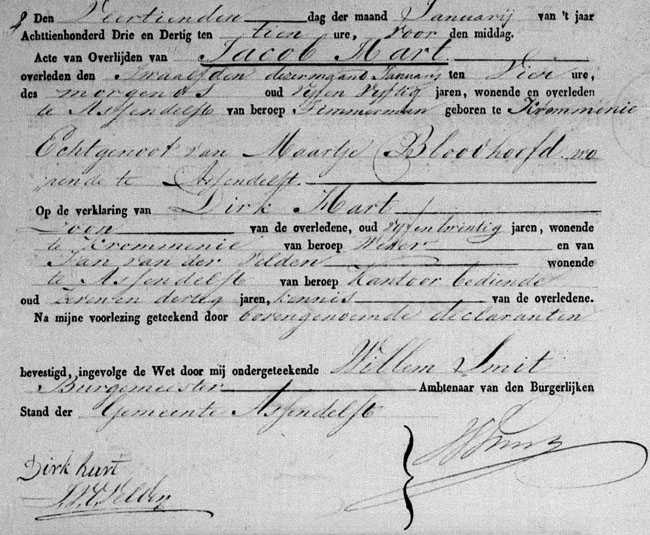 4 Den Veertienden dag der maand Januarij van 't jaar
Achttienhonderd Drie en Dertig ten tien ure, voor den middag.
Acte van Overlijden van Jacob Hart
overleden den twaalfden dezer maand Januarij ten Vier ure,
des morgens oud Vyf en Vyftig jaren, wonende en overleden
te Assendelft van beroep Timmerman geboren te Krommenie
Echtgenoot van Maartje Bloothoofd wo
nende te Assendelft.
Op de verklaring van Dirk Hart
Zoon van de overledene, oud vyf en twintig jaren, wonende
te Krommenie van beroep Wever en van
Jan van der Velden wonende
te Assendelft van beroep Kantoor bediende
oud zeven en dertig jaren, kennis van de overledene.
Na mijne voorlezing geteekend door bovengenoemde declaranten
bevestigd, ingevolge de Wet door mij ondergeteekende Willem Smit
Burgemeester Ambtenaar van den Burgerlijken
Stand der Gemeente Assendelft
Dirk hart
Velden